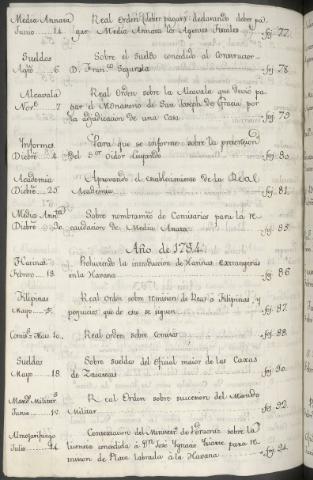 Media Annata Real Orden (deber pagar) declarando deber pa,
Junio....14 gar Media Annata los Agentes Fiscales foj. 77.
Sueldos Sobre el Sueldo concedido al Conservador
Agto 6 Dn. Franco. Segurola foj. 78.
Alcavala Real Orden sobre la Alcavala que devió pa
Nove. 7 gar el Monasterio de San Joseph de Gracia por
la adjudicacion de una Casa foj. 79.
Informes Para que se informe sobre la pretencion
Dicbre 4 del Sor. Oidor foj. 80.
Academia Aprovando el establecimiento de la Real
Dicbre 25 Academia foj. 81.
Media Annata Sobre nombramto. de Comisarios para la re-
Dicbre 30 caudacion de Media Annata foj. 83.
Año de 1784.
Harinas Prohiviendo la introduccion de Harinas extrangeras
Febrero 18. en la Havana foj. 86.
Filipinas Real Orden sobre remision de Reos á Filipinas, y
Mayo 5. que de ellos se siguen foj. 87.
Real orden sobre foj. 88.
Sueldos Sobre sueldos del oficial maior de las Caxas
Mayo 18. de Zacatecas foj. 90.
Real Orden sobre sucesion del Mando
Junio 10 Militar foj. 92.
Almojarifazgo Contestacion del sobre la
Julio 14 concedida á Dn. José Ygnacio para re-
mision de Plata labrada á la Havana foj. 94.